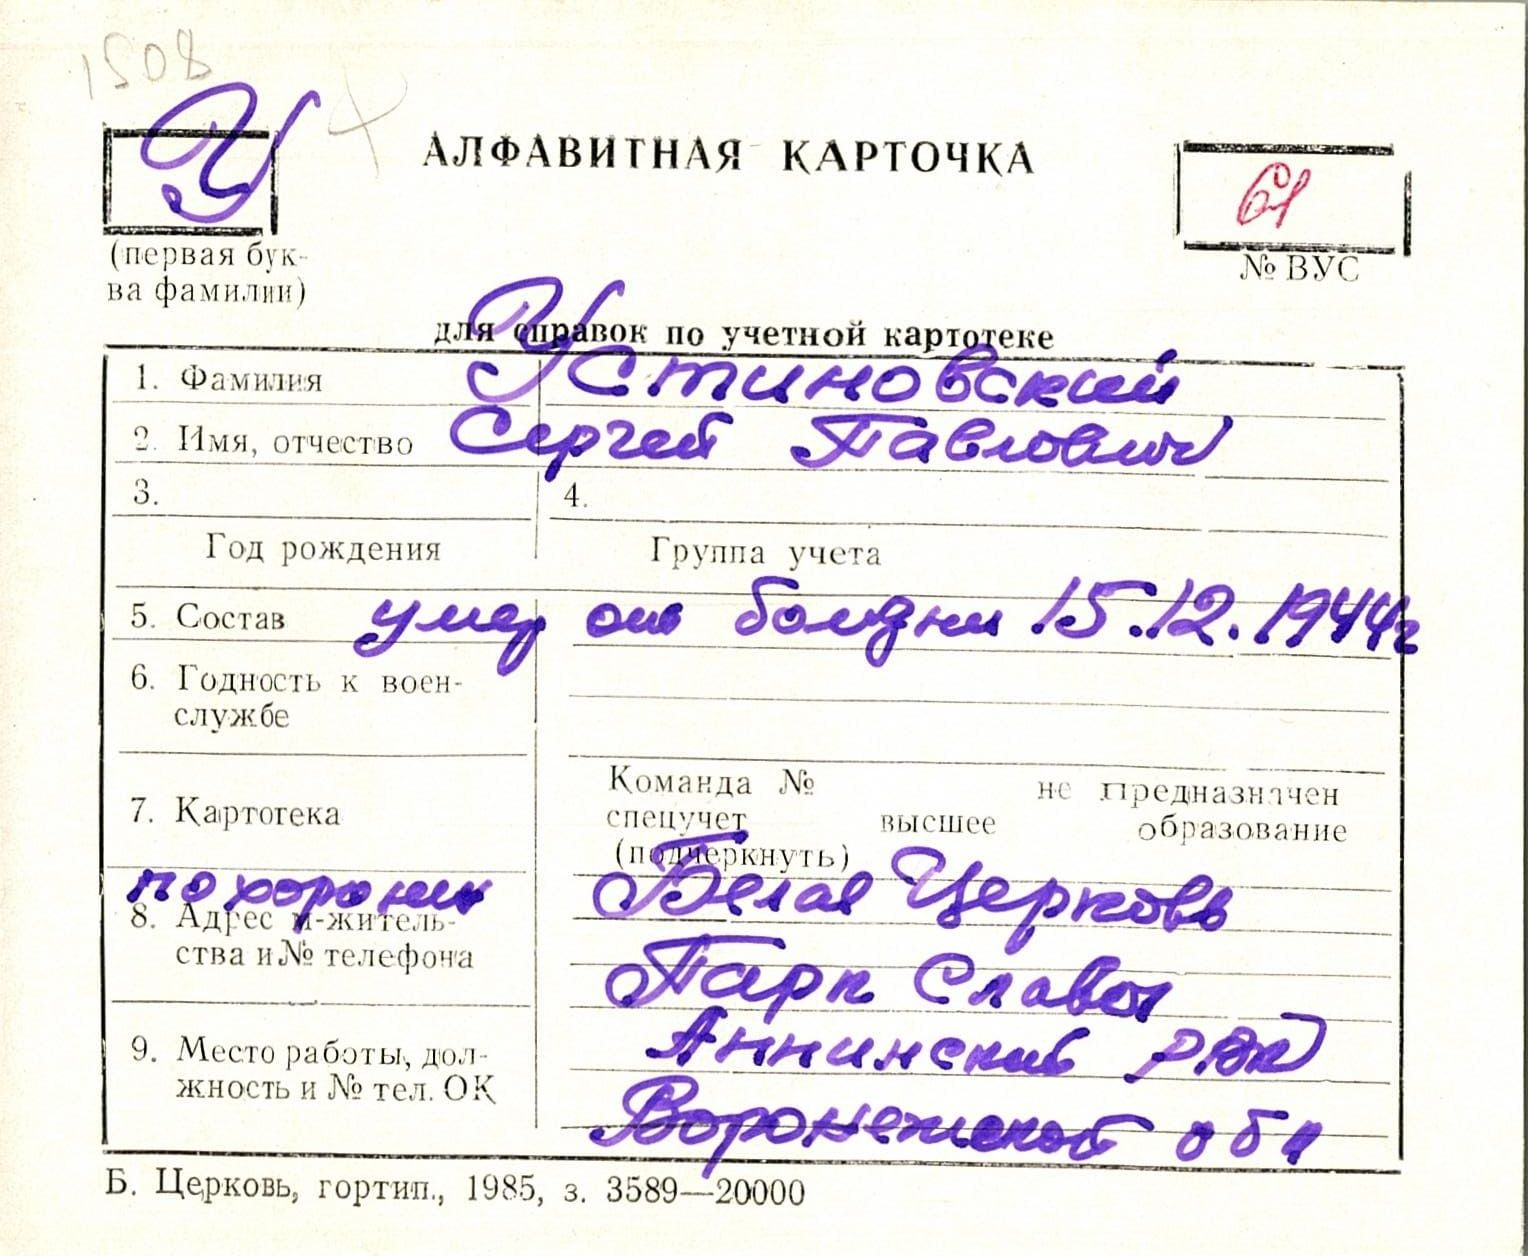 1508
У
АЛФАВИТНАЯ КАРТОЧКА
61
(первая бук-
ва фамилии)
№ ВУС
для справок по учетной картотеке
1. Фамилия Устиновский
2. Имя, отчество Сергей Павлович
3. 4.
Год рождения Группа учета
5. Состав умер от болезни 15.12.1944г
6. Годность к воен-
службе
Команда № не предназначен
7. Картотека спецучет высшее образование
(подчеркнуть)
похоронен Белая Церковь
8. Адрес м-житель-
ства и № телефона Парк Славы
9. Место работы, дол- Аннинский РВК
жность и № тел. ОК Воронежской обл
Б. Церковь, гортип., 1985, з. 3589—20000